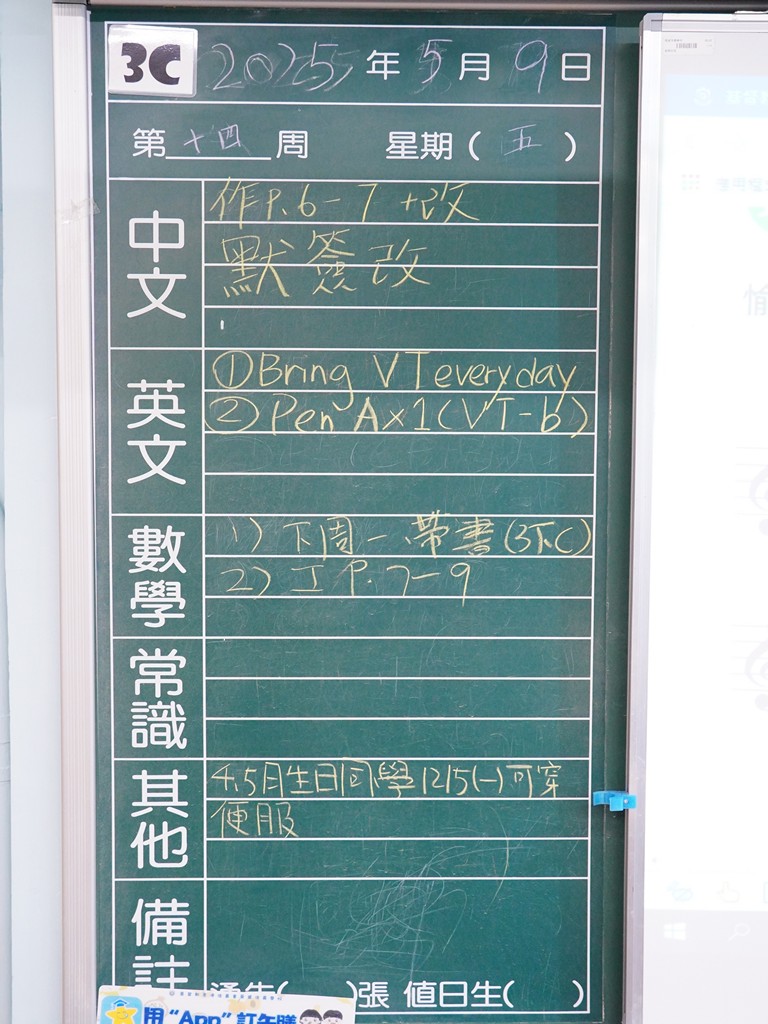 3C 2025年5月9日
第十四周 星期(五)
中文
作P.6-7+改
默簽改
英文
①Bring VT everyday
②Pen A×1(VT-b)
數學
1) 下周一帶書(3下C)
2) 工 P.7-9
常識
其他
4、5月生日同學12/5(一)可穿
便服
備註
通告( )張 值日生( )
用“App”訂午膳